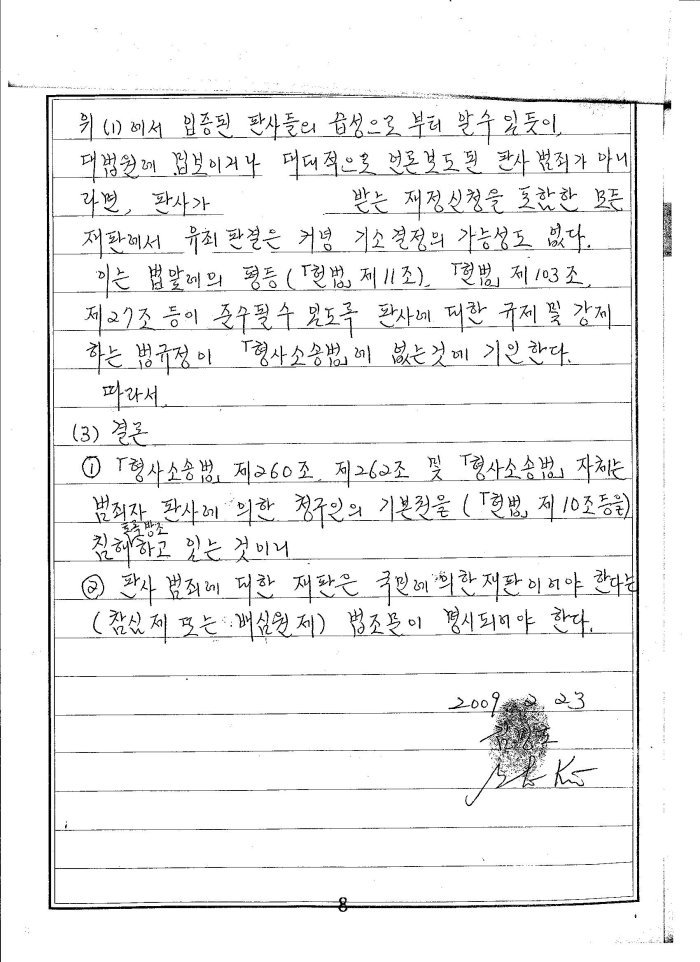 위 (1)에서 입증된 판사들의 급성으로 부터 알수 있듯이,
대법원에 밉보이거나 대대적으로 언론보도된 판사 범죄가 아니
라면, 판사가 받는 재정신청을 포함한 모든
재판에서 유죄판결은 커녕 기소결정의 가능성도 없다.
이는 법앞에의 평등(「헌법」제11조), 「헌법」제103조,
제27조 등이 준수될수 있도록 판사에 대한 규제 및 강제
하는 법규정이 「형사소송법」에 없는것에 기인한다.
따라서,
(3) 결론
① 「형사소송법」 제260조, 제262조 및 「형사소송법」 자체는
범죄자 판사에 의한 청구인의 기본권을 (「헌법」 제10조등을)
침해하고 있는 것이니
② 판사 범죄에 대한 재판은 국민에 의한 재판이어야 한다는
(참심제 또는 배심원제) 법조문이 명시되어야 한다.
2009. 2. 23
8